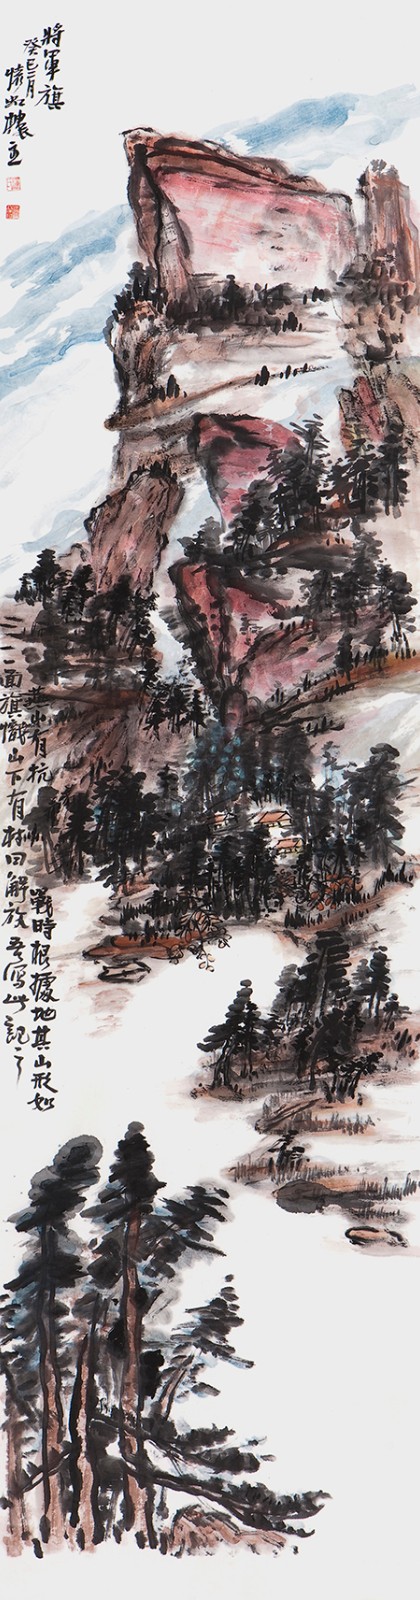 將軍旗
癸巳二月
燕山有抗
戰時根據地其山形如
一面旗幟山下有村曰解放
吾寫此記之